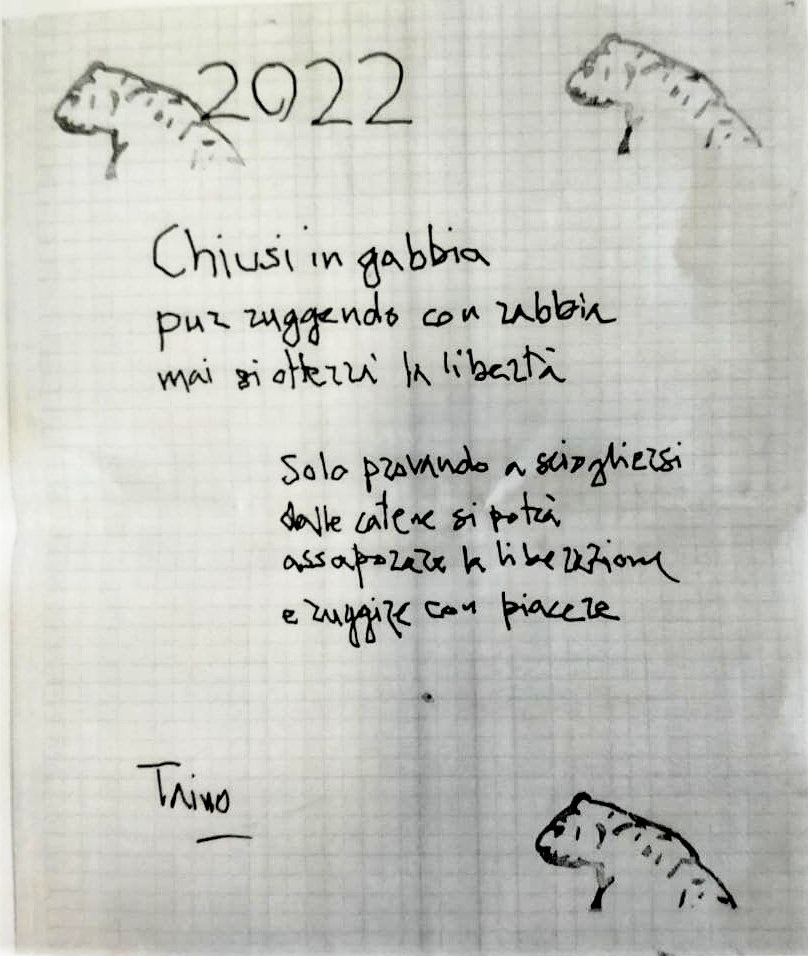 2022
Chiusi in gabbia
pur ruggendo con rabbia
mai si otterrà la libertà
Solo provando a sciogliersi
dalle catene si potrà
assaporare la liberazione
e ruggire con piacere
Taino